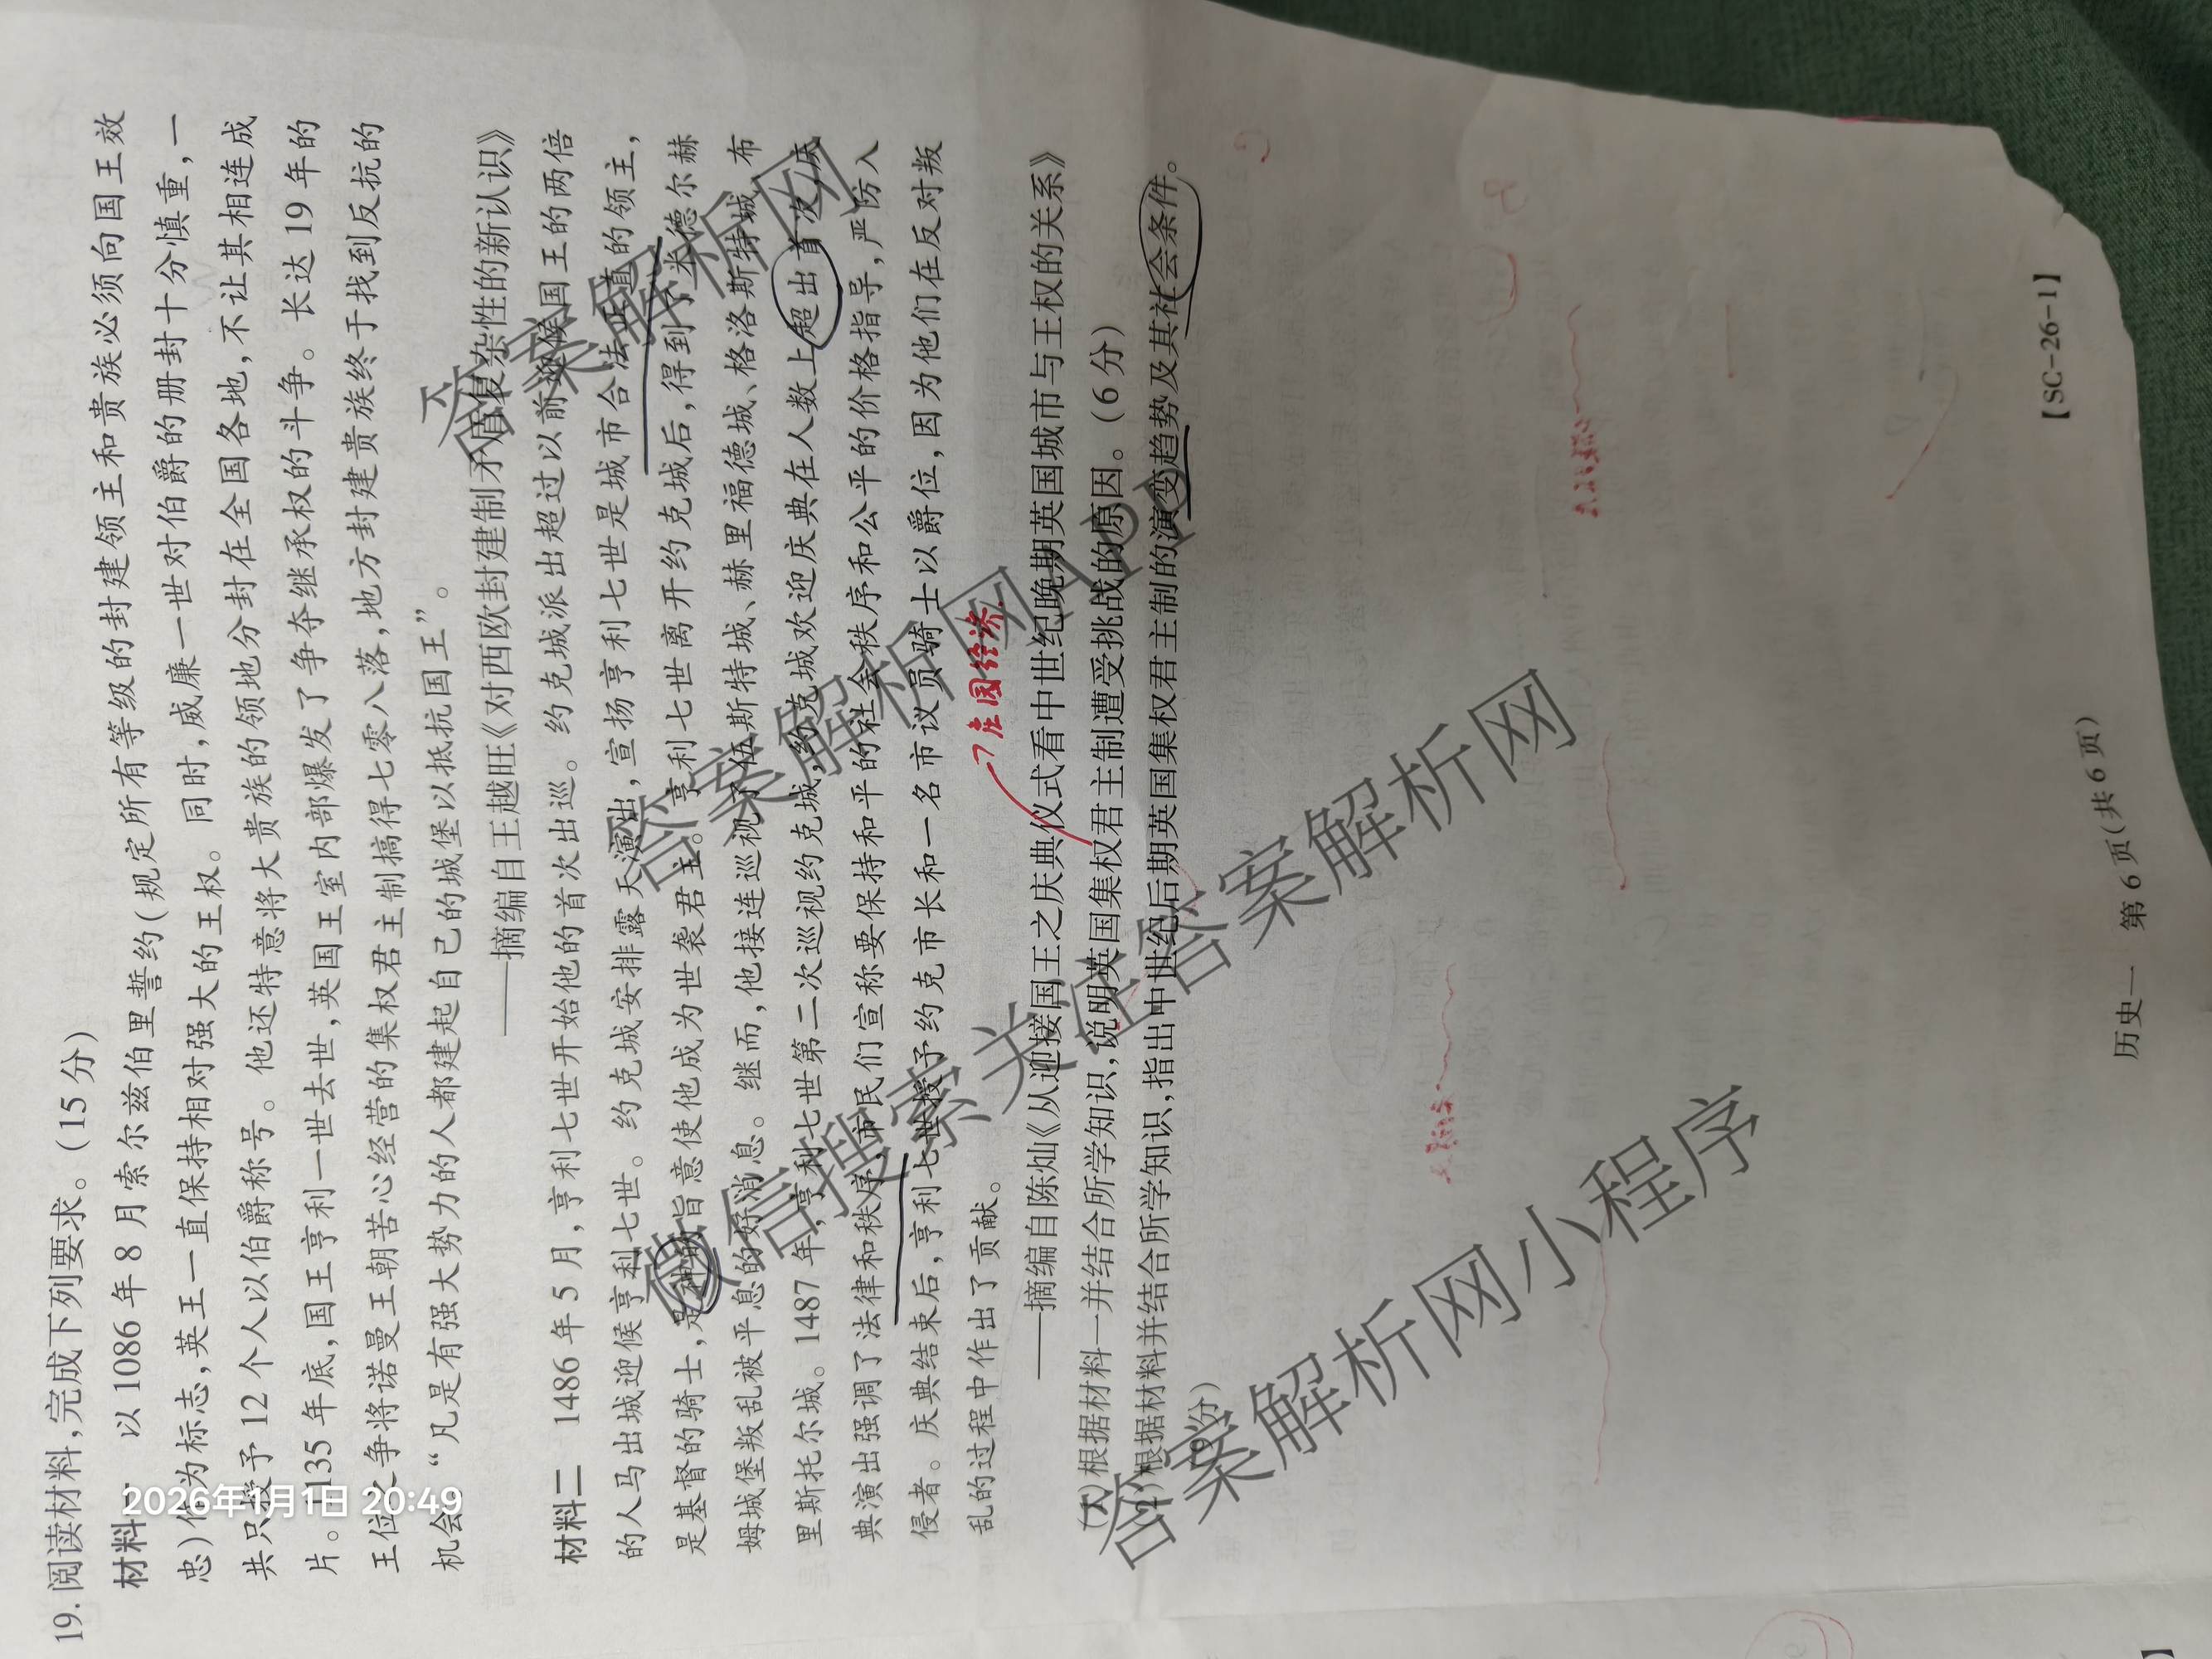 19. 阅读材料,完成下列要求。(15分)
材料一 以1086年8月索尔兹伯里誓约(规定所有等级的封建领主和贵族必须向国王效
忠)作为标志,英王一直保持相对强大的王权。同时,威廉一世对伯爵的册封十分慎重,一
共只授予12个人以伯爵称号。他还特意将大贵族的领地分封在全国各地,不让其相连成
片。1135年底,国王亨利一世去世,英国王室内部爆发了争夺继承权的斗争。长达19年的
王位之争将诺曼王朝苦心经营的集权君主制搞得七零八落,地方封建贵族终于找到反抗的
机会“凡是有强大势力的人都建起自己的城堡以抵抗国王”。
——摘编自王越旺《对西欧封建制矛盾复杂性的新认识》
材料二 1486年5月,亨利七世开始他的首次出巡。约克城派出超过以前迎候国王的两倍
的人马出城迎候亨利七世。约克城安排露天演出,宣扬亨利七世是城市合法正道的领主,
是基督的骑士,是神的旨意使他成为世袭君主。亨利七世离开约克城后,得到了米德尔赫
姆城堡叛乱被平息的好消息。继而,他接连巡视了伍斯特城、赫里福德城、格洛斯特城、布
里斯托尔城。1487年,亨利七世第二次巡视约克城,约克城欢迎庆典在人数上超出首次,庆
典演出强调了法律和秩序,市民们宣称要保持和平的社会秩序和公平的价格指导,严防入
侵者。庆典结束后,亨利七世授予约克市长和一名市议员骑士以爵位,因为他们在反对叛
乱的过程中作出了贡献。
——摘编自陈灿《从迎接国王之庆典仪式看中世纪晚期英国城市与王权的关系》
庄园经济
(1)根据材料一并结合所学知识,说明英国集权君主制遭受挑战的原因。(6分)
(2)根据材料并结合所学知识,指出中世纪后期英国集权君主制的演变趋势及其社会条件。
(9分)
历史一 第6页(共6页)
【SC-26-1】
答案解析网
微信搜索并关注答案解析网
答案解析网小程序
20:49